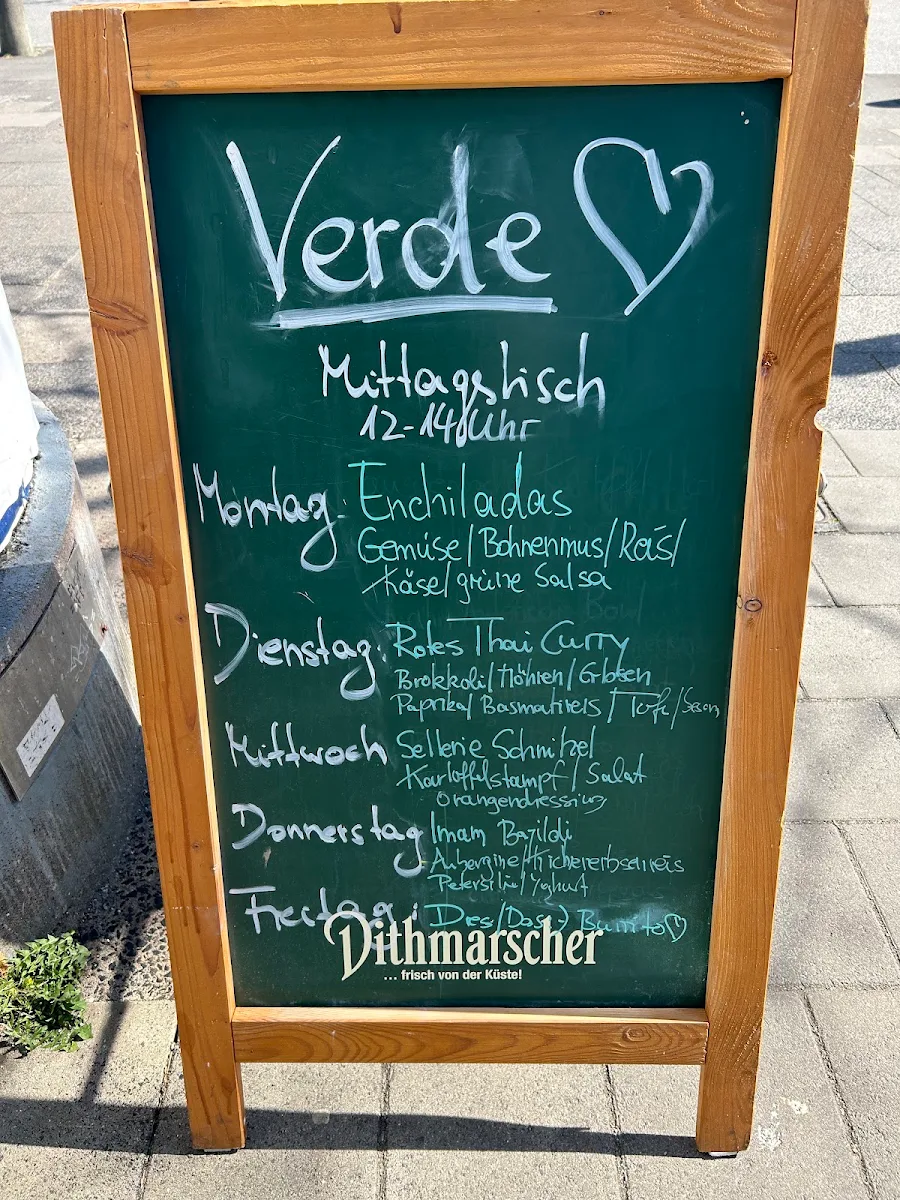 Verde
Mittagstisch
12-14 Uhr
Montag: Enchiladas
Gemüse/Bohnenmus/Reis/
Käse/grüne Salsa
Dienstag: Rotes Thai Curry
Brokkoli/Möhren/Erbsen
Paprika/Basmatireis/Tofu/
Mittwoch Sellerie Schnitzel
Kartoffelstampf/Salat
Orangendressing
Donnerstag Imam Bazildi
Aubergine/Kichererbsenreis
Petersilie/Yoghurt
Freitag: Dies/Das Burrito
Dithmarscher
... frisch von der Küste!